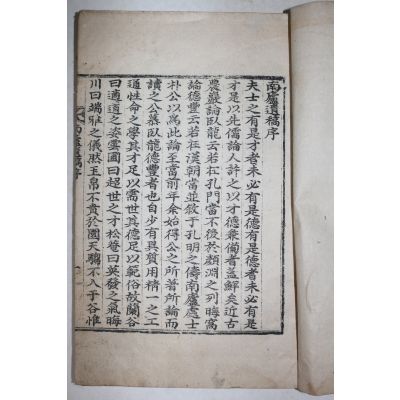 南廬遺稿序
夫士之有是才者未必有是德有是德者未必有是
才是以先儒論人許之以才德兼備者盖鮮矣近古
農巖論臥龍云若在孔門當不後於顔淵之列晦窩
論德豐云若在漢朝當並敘于孔明之儔南廬處士
朴公以為此論至當前年余始得公之所著所論而
讀之公慕臥龍德豐者也自少有具質用精一之工
通性命之學其才足以需世其德足以範俗故蘭谷
曰適道之姿雲圃曰超世之才松菴曰英發之氣晦
川曰端雅之儀然玉帛不賁於園天驥不入于谷惟